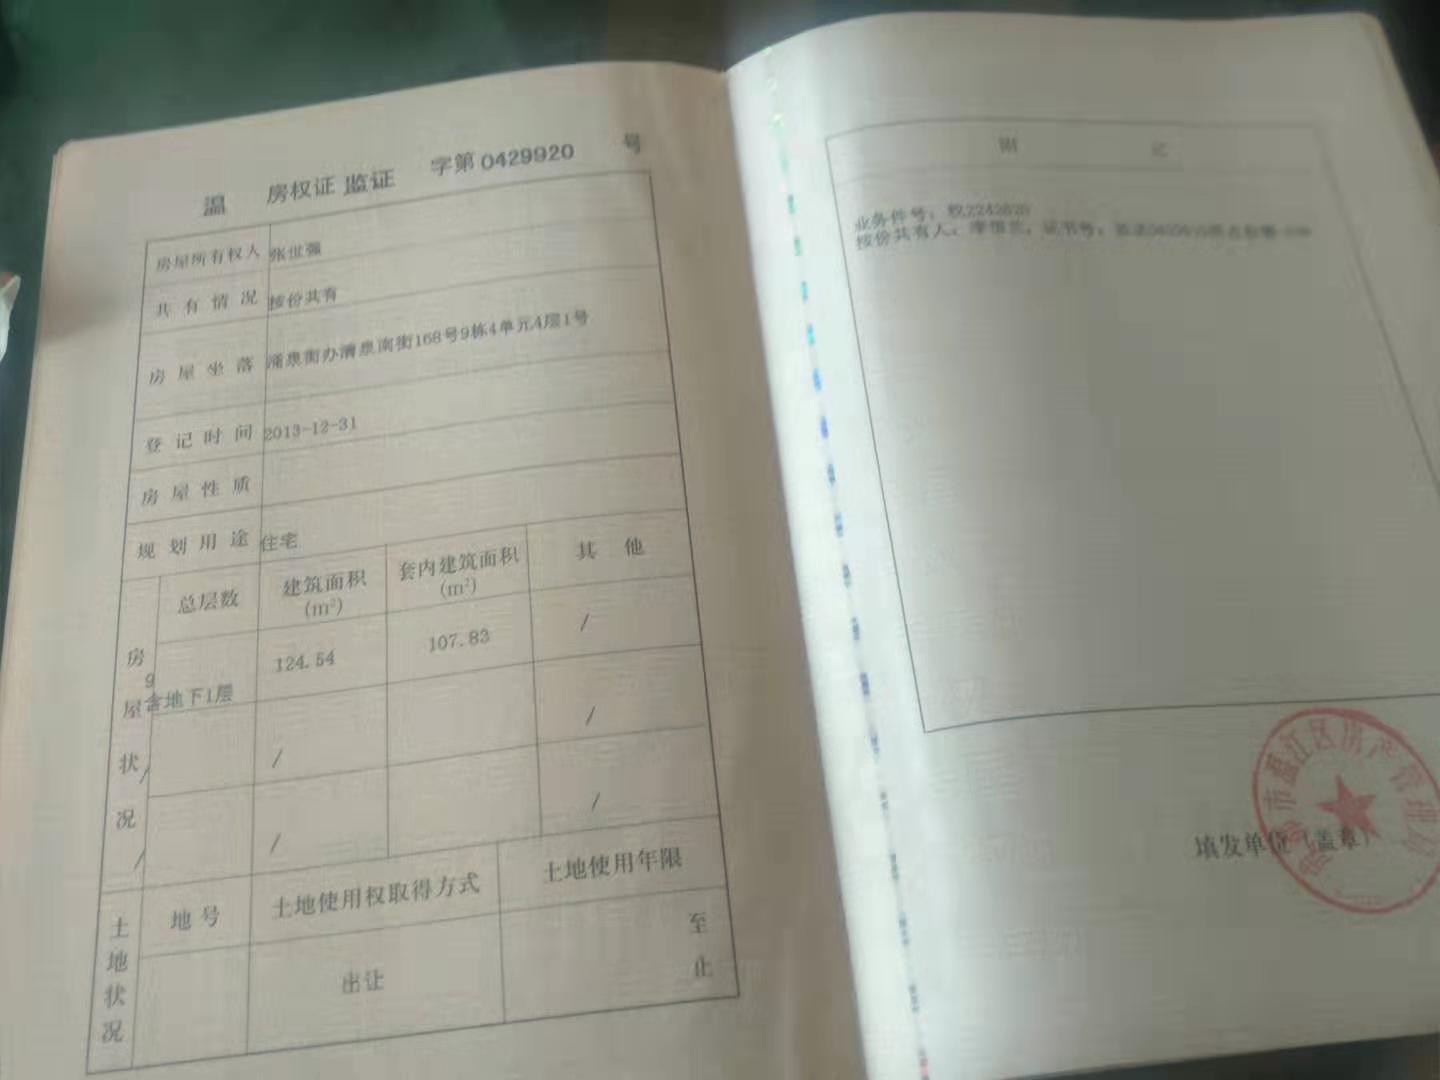 温 房权证 监证 字第 0429920 号
房屋所有权人 张世强
共有情况 按份共有
房屋坐落 涌泉街办清泉南街168号9栋4单元4层1号
登记时间 2013-12-31
房屋性质
规划用途 住宅
房屋状况
总层数 建筑面积(m²) 套内建筑面积(m²) 其他
9
含地下1层 124.54 107.83 /
/ / /
/ / /
土地状况
地号 土地使用权取得方式 土地使用年限
出让 至
止
附 记
业务件号：权2242626
按份共有人：李 证书号：
成都市温江区房产管理局
填发单位（盖章）